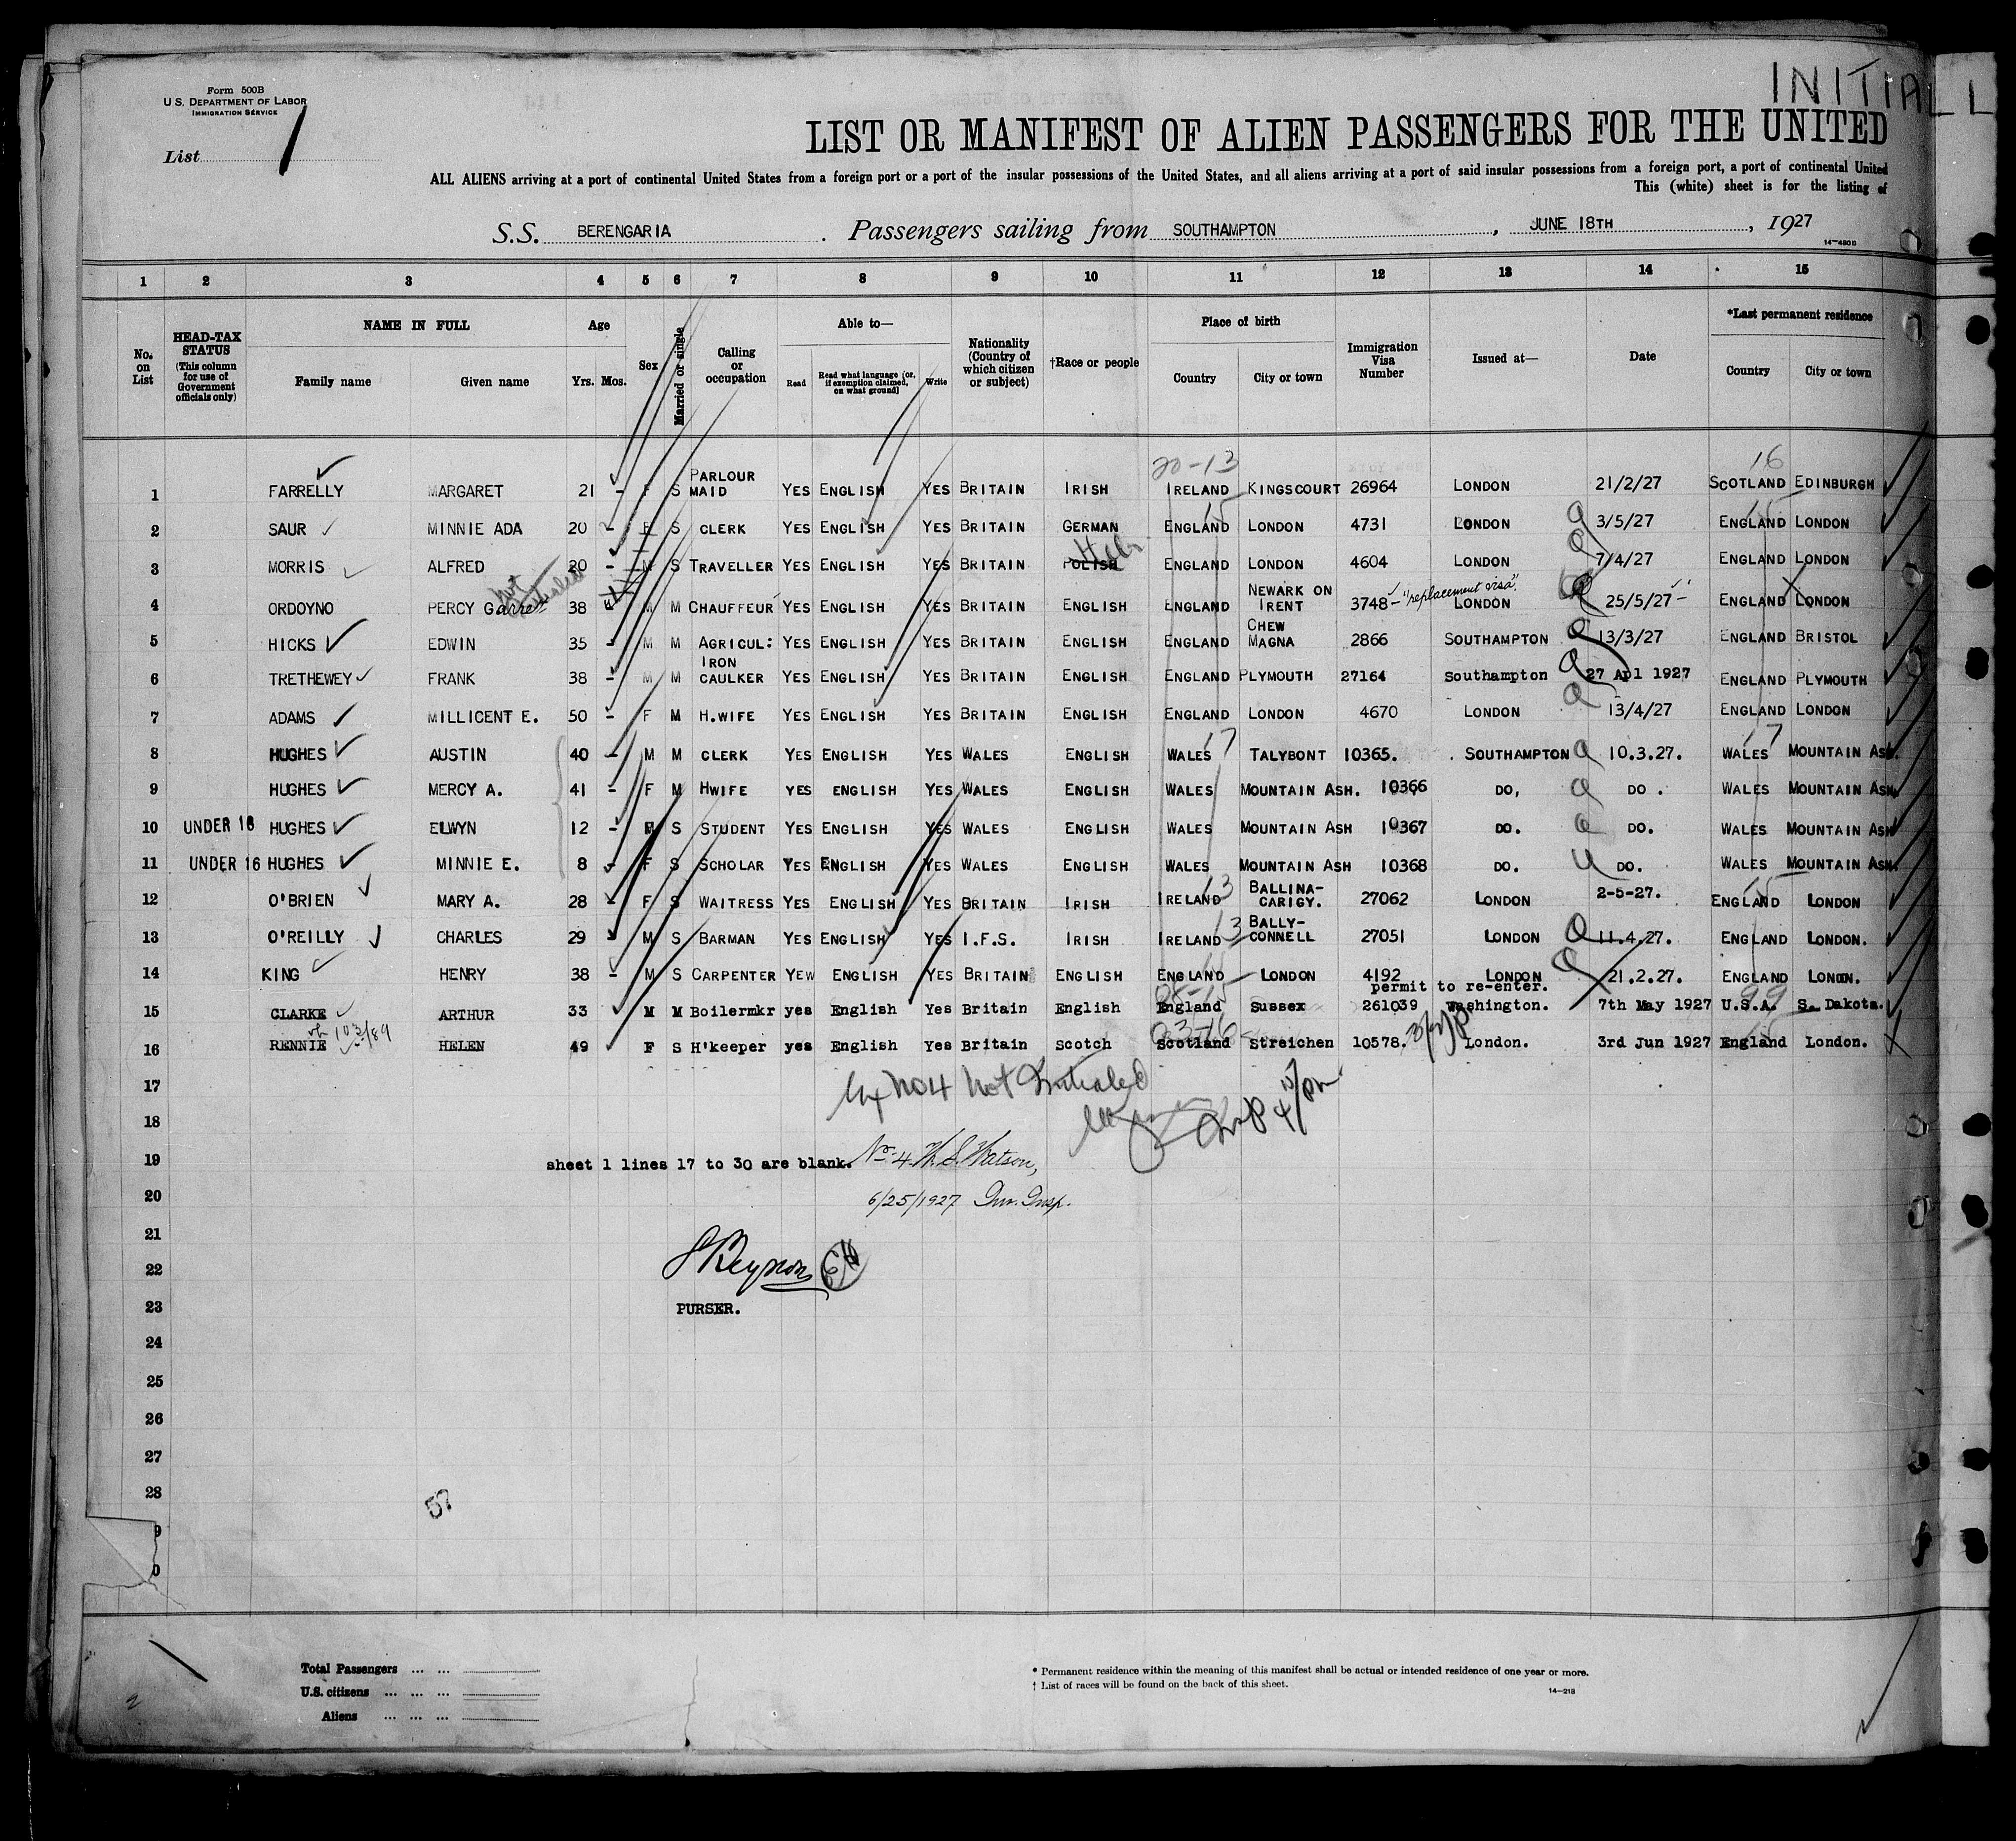 INITIALL
Form 500B
U.S. DEPARTMENT OF LABOR
IMMIGRATION SERVICE
List 1
LIST OR MANIFEST OF ALIEN PASSENGERS FOR THE UNITED
ALL ALIENS arriving at a port of continental United States from a foreign port or a part of the insular possessions of the United States, and all aliens arriving at a port of said insular possessions from a foreign port, a port of continental United
This (white) sheet is for the listing of
S.S. BERENGARIA . Passengers sailing from SOUTHAMPTON , JUNE 18TH , 1927
14-480B
1 2 3 4 5 6 7 8 9 10 11 12 13 14 15
No. on List
HEAD-TAX STATUS (This column for use of Government officials only)
NAME IN FULL Family name Given name
Age Yrs. Mos.
Sex
Married or single
Calling or occupation
Able to— Read Read what language (or, if exemption claimed, on what ground) Write
Nationality (Country of which citizen or subject)
†Race or people
Place of birth Country City or town
Immigration Visa Number
Issued at—
Date
*Last permanent residence Country City or town
20-13 16
1 FARRELLY MARGARET 21 - F S PARLOUR MAID YES ENGLISH YES BRITAIN IRISH IRELAND KINGSCOURT 26964 LONDON 21/2/27 SCOTLAND EDINBURGH
2 SAUR MINNIE ADA 20 - F S CLERK YES ENGLISH YES BRITAIN GERMAN ENGLAND 15 LONDON 4731 LONDON 3/5/27 ENGLAND 15 LONDON
3 MORRIS ALFRED 20 - M S TRAVELLER YES ENGLISH YES BRITAIN POLISH ENGLAND LONDON 4604 LONDON 7/4/27 ENGLAND LONDON
not
4 ORDOYNO PERCY Garret 38 - M M CHAUFFEUR YES ENGLISH YES BRITAIN ENGLISH ENGLAND NEWARK ON TRENT 3748 - "replacement visa". LONDON 25/5/27 - ENGLAND LONDON
5 HICKS EDWIN 35 - M M AGRICUL: YES ENGLISH YES BRITAIN ENGLISH ENGLAND CHEW MAGNA 2866 SOUTHAMPTON 13/3/27 ENGLAND BRISTOL
6 TRETHEWEY FRANK 38 - M M IRON CAULKER YES ENGLISH YES BRITAIN ENGLISH ENGLAND PLYMOUTH 27164 Southampton 27 Apl 1927 ENGLAND PLYMOUTH
7 ADAMS MILLICENT E. 50 - F M H.WIFE YES ENGLISH YES BRITAIN ENGLISH ENGLAND LONDON 4670 LONDON 13/4/27 ENGLAND LONDON
8 HUGHES AUSTIN 40 - M M CLERK YES ENGLISH YES WALES ENGLISH WALES 17 TALYBONT 10365. . SOUTHAMPTON 10.3.27. WALES 17 MOUNTAIN ASH.
9 HUGHES MERCY A. 41 - F M HWIFE YES ENGLISH YES WALES ENGLISH WALES MOUNTAIN ASH. 10366 DO, DO . WALES MOUNTAIN ASH.
10 UNDER 16 HUGHES ELWYN 12 - M S STUDENT YES ENGLISH YES WALES ENGLISH WALES MOUNTAIN ASH 10367 DO. DO. WALES MOUNTAIN ASH
11 UNDER 16 HUGHES MINNIE E. 8 F S SCHOLAR YES ENGLISH YES WALES ENGLISH WALES MOUNTAIN ASH 10368 DO. DO. WALES MOUNTAIN ASH.
12 O'BRIEN MARY A. 28 F S WAITRESS YES ENGLISH YES BRITAIN IRISH IRELAND 13 BALLINA-CARIGY. 27062 LONDON 2-5-27. ENGLAND 15 LONDON
13 O'REILLY CHARLES 29 M S BARMAN YES ENGLISH YES I.F.S. IRISH IRELAND 13 BALLY-CONNELL 27051 LONDON 11.4.27. ENGLAND LONDON.
14 KING HENRY 38 - M S CARPENTER YEW ENGLISH YES BRITAIN ENGLISH ENGLAND 15 LONDON 4192 LONDON 21.2.27. ENGLAND LONDON.
permit to re-enter.
15 CLARKE ARTHUR 33 M M Boilermkr yes English Yes Britain English England Sussex 261039 Washington. 7th May 1927 U.S.A. 99 S. Dakota.
16 RENNIE HELEN 49 F S H'keeper yes English Yes Britain Scotch Scotland Streichen 10578. London. 3rd Jun 1927 England 15 London.
17
No 4 not Initialed
18
19 sheet 1 lines 17 to 30 are blank. No. 4. Watson,
20 6/25/1927 Im. Insp.
21
22
23 PURSER.
24
25
26
27
28
57
9
0
Total Passengers ... ...
U.S. citizens ... ... ...
Aliens ... ... ...
* Permanent residence within the meaning of this manifest shall be actual or intended residence of one year or more.
† List of races will be found on the back of this sheet.
14-213